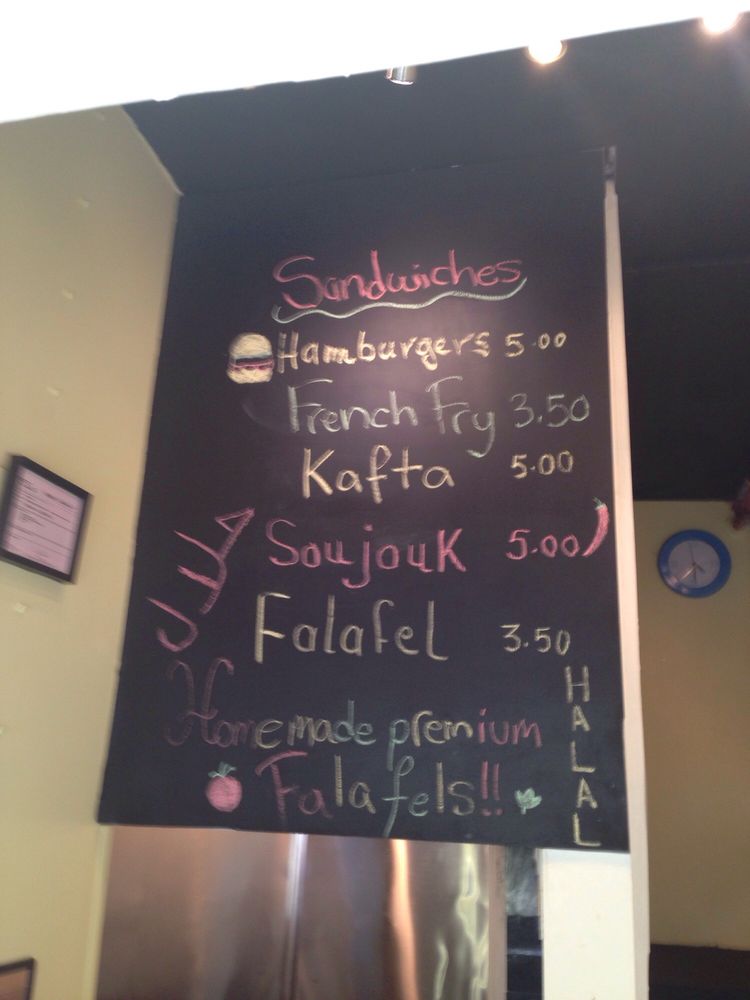 Sandwiches
Hamburgers 5.00
French Fry 3.50
Kafta 5.00
Soujouk 5.00
Falafel 3.50
حلال
HALAL
Homemade premium
Falafels!!